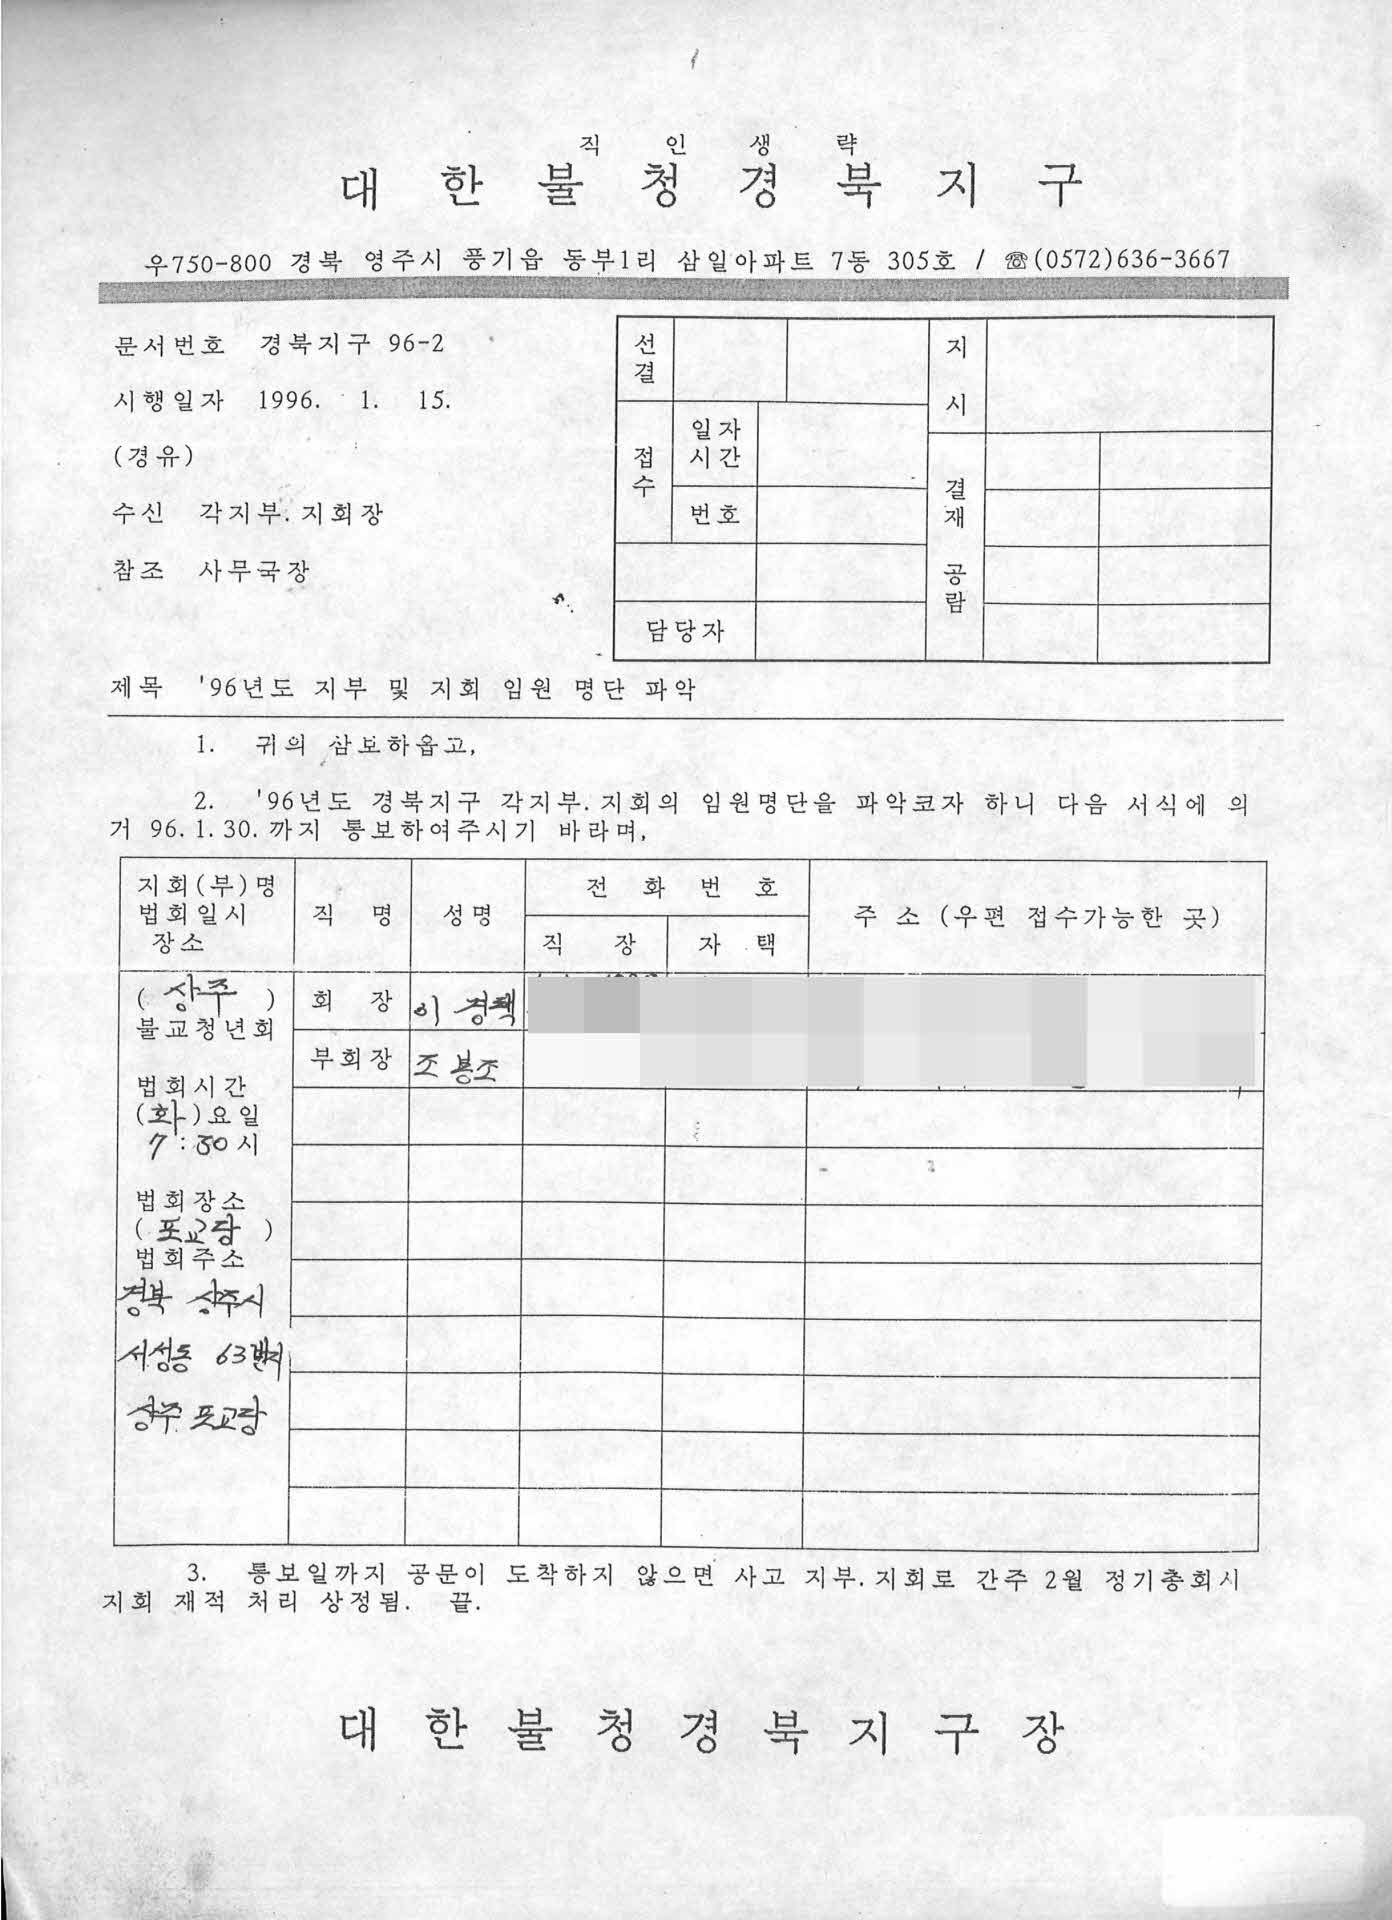 직 인 생 략
대 한 불 청 경 북 지 구
우750-800 경북 영주시 풍기읍 동부1리 삼일아파트 7동 305호 / ☏(0572)636-3667
문서번호 경북지구 96-2
시행일자 1996. 1. 15.
(경유)
수신 각지부.지회장
참조 사무국장
선결
지시
접수
일자
시간
번호
결재
공람
담당자
제목 '96년도 지부 및 지회 임원 명단 파악
1. 귀의 삼보하옵고,
2. '96년도 경북지구 각지부.지회의 임원명단을 파악코자 하니 다음 서식에 의
거 96.1.30.까지 통보하여주시기 바라며,
지회(부)명
법회일시
장소
직 명
성명
전 화 번 호
직 장
자 택
주 소 (우편 접수가능한 곳)
( 상주 )
불교청년회
회 장 이경택
부회장 조봉조
법회시간
(화)요일
7:30시
법회장소
( 포교당 )
법회주소
경북 상주시
서성동 63번지
상주 포교당
3. 통보일까지 공문이 도착하지 않으면 사고 지부.지회로 간주 2월 정기총회시
지회 재적 처리 상정됨. 끝.
대 한 불 청 경 북 지 구 장